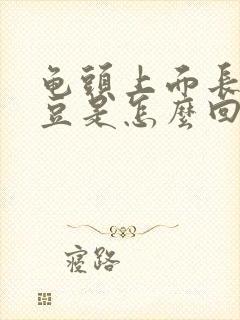 龟頭上而長
豆是怎麼回
寝路